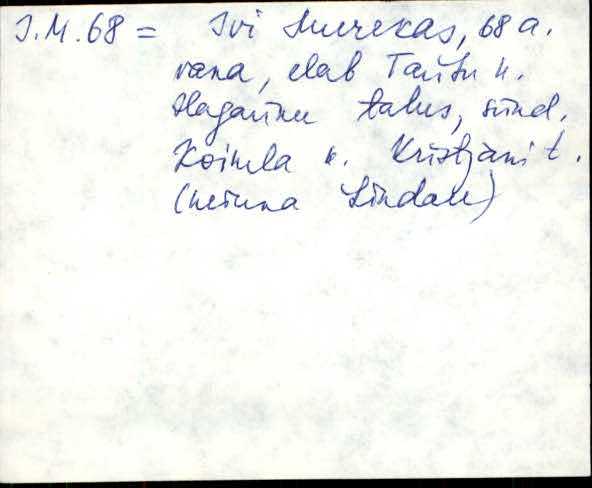 I.M.68 = Ivi Murekas, 68 a.
vana, elab Taritu k.
talus, sünd.
Koimla k. Kristjani t.
(neiuna Lindau)